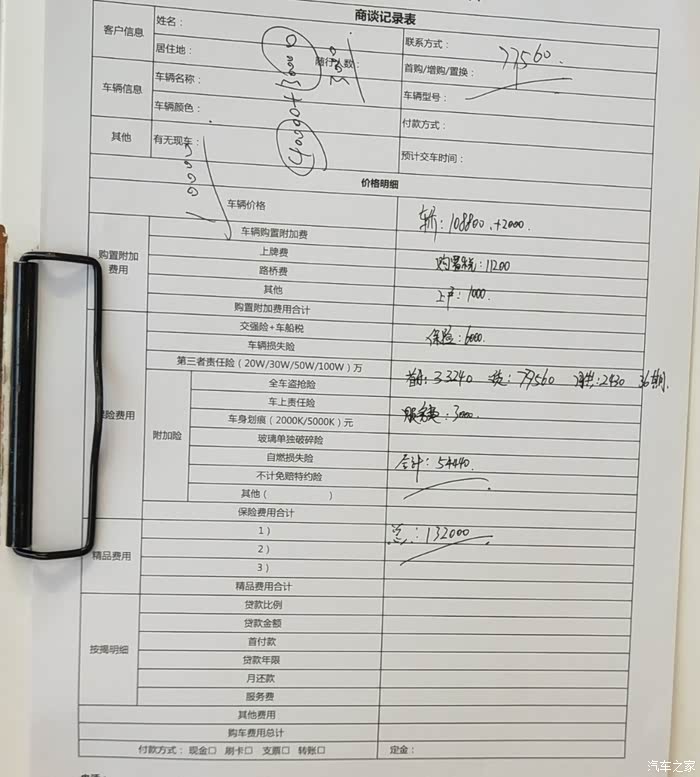 商谈记录表
客户信息
姓名：
联系方式：
居住地：
随行人数：
首购/增购/置换：
77560.
40000+
车辆信息
车辆名称：
车辆型号：
车辆颜色：
付款方式：
其他
有无现车：
预计交车时间：
价格明细
车辆价格
车价：108800.+2000.
购置附加费用
车辆购置附加费
上牌费
购置税：11200
路桥费
其他
上户：1000.
购置附加费用合计
保险费用
交强险+车船税
保险：6000.
车辆损失险
第三者责任险（20W/30W/50W/100W）万
附加险
全车盗抢险
首付：33240 贷：79560 月供：2430 36期.
车上责任险
车身划痕（2000K/5000K）元
服务费：3000.
玻璃单独破碎险
自燃损失险
合计：54440.
不计免赔特约险
其他（ ）
保险费用合计
精品费用
1）
总：132000
2）
3）
精品费用合计
按揭明细
贷款比例
贷款金额
首付款
贷款年限
月还款
服务费
其他费用
购车费用总计
付款方式：现金□ 刷卡□ 支票□ 转账□
定金：
汽车之家